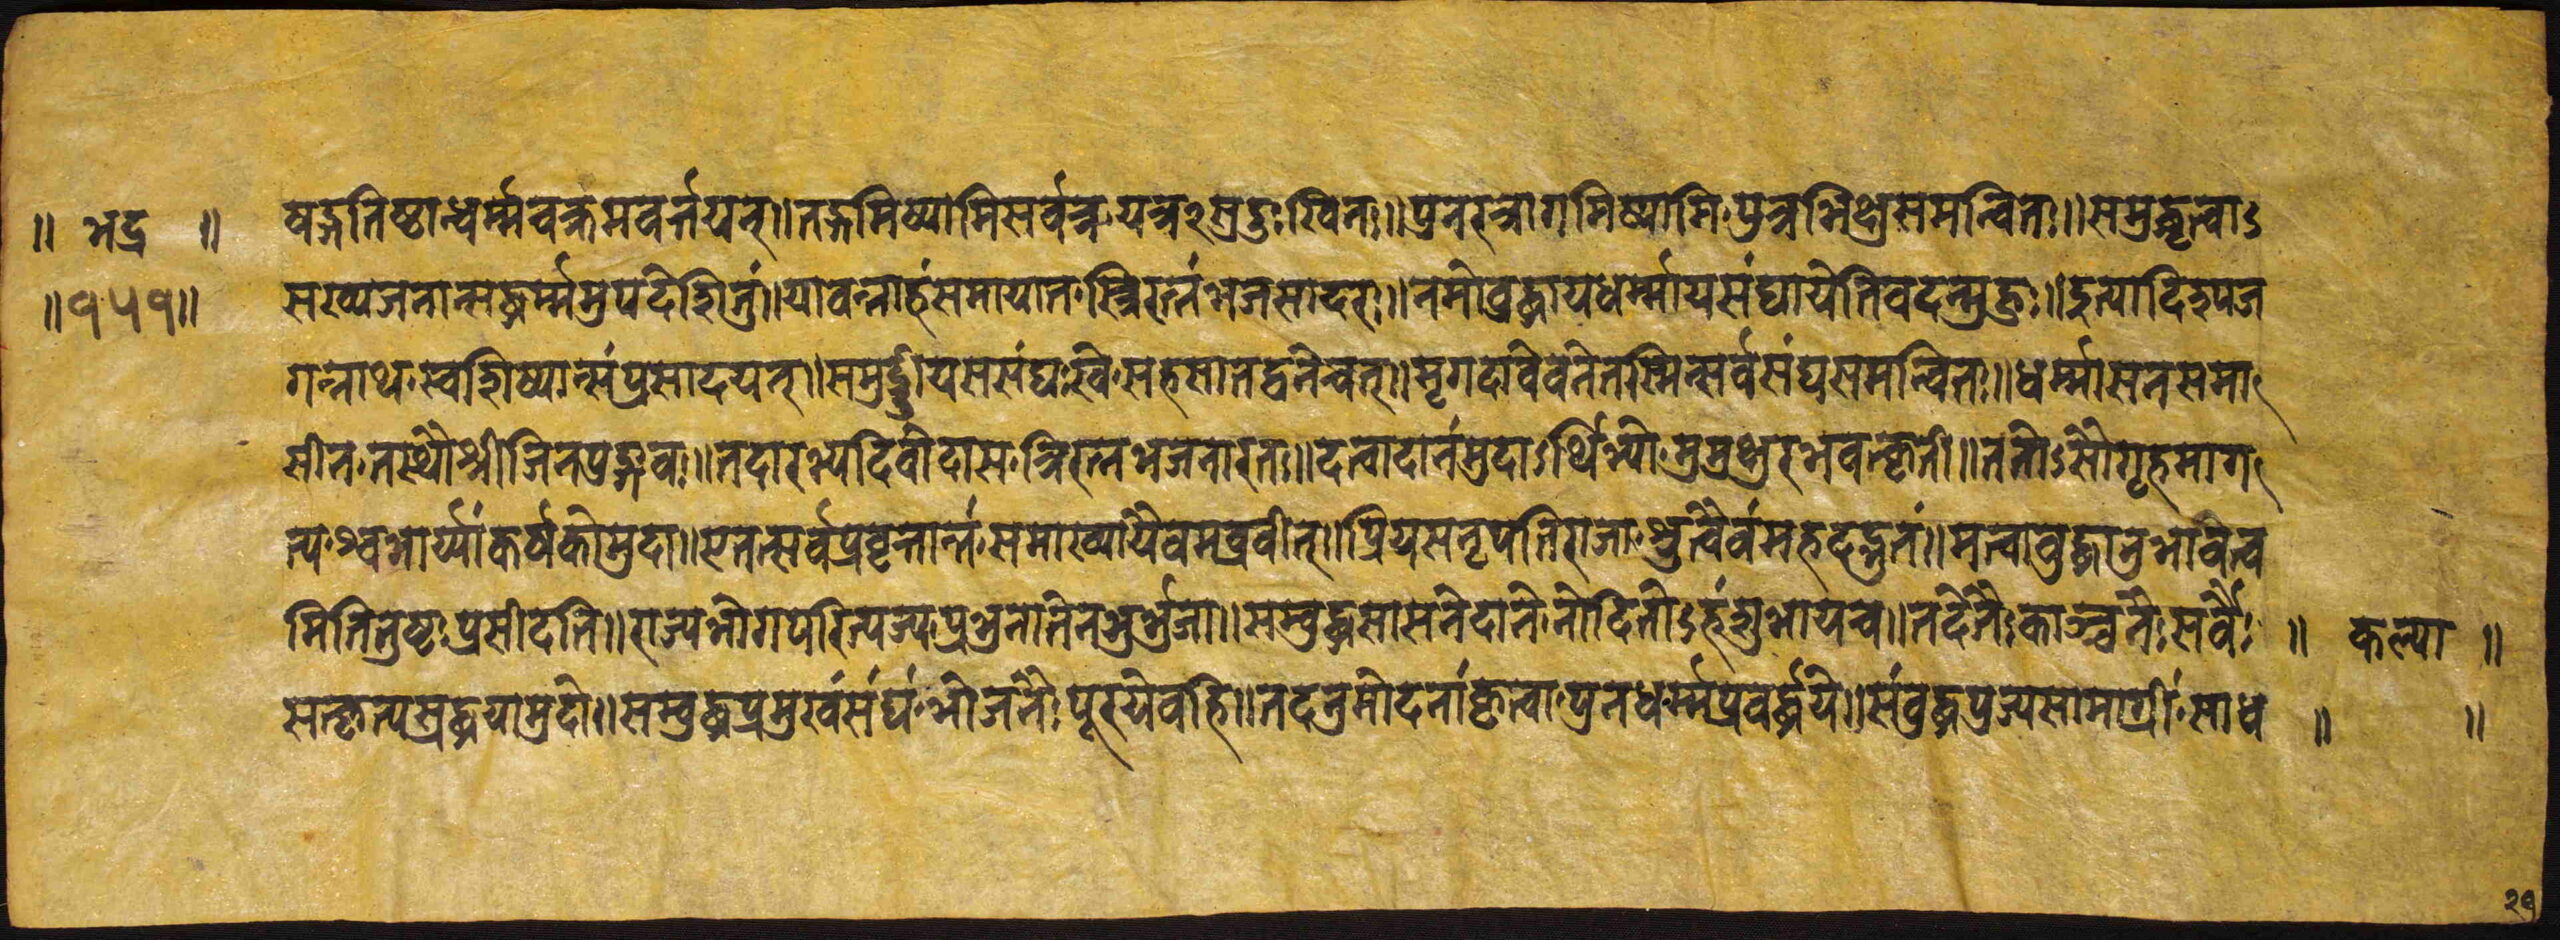 ॥ भद्र ॥ षङ्गतिष्ठान्धर्म्मचक्रमवर्त्तयत्॥तङ्गमिष्यामिसर्वत्र॰यत्र२सुदुःखितः॥पुनरत्रागमिष्यामि॰पुत्रभिक्षुसमन्वितः॥समुद्धृत्वाऽ
॥१५१॥ सख्यजनान्सद्धर्म्ममुपदेशितुं॥यावन्नाहंसमायात॰स्त्रिरत्नंभजसादरः॥नमोबुद्धायधर्म्मायसंघायेतिवदन्मुहुः॥इत्यादिश्यज
गन्नाथ॰स्वशिष्यान्संप्रसादयन्॥समुर्द्धीयससंघः॰खे॰सहसातद्वनेचरत्॥मृगदावेवनेतस्मिन्सर्वसंघसमन्वितः॥धर्म्मासनसमा॰
सीन॰तस्थौश्रीजिनपुङ्गवः॥तदारभ्यदिवोदास॰त्रिरत्नभजनारतः॥दत्वादानंमुदाऽर्थिभ्यो॰मुमुक्षुरभवत्कृती॥ततोऽसौगृहमाग॰
त्य॰श्वभार्य्यांकर्षकोमुदा॥एतत्सर्वप्रवृत्तान्तं॰समाख्यायैवमब्रवीत्॥प्रियेसनृपतिराजा॰श्रुत्वैवंमहदद्भुतं॥मत्वाबुद्धानुभावत्व
मितितुष्टः॰प्रसीदति॥राज्यभोगपरित्यज्य॰प्रभुनातेनभुर्भुजा॥सम्बुद्धसासनेदाने॰नोदितोऽहंशुभायच॥तदेतैःकाञ्चनैःसर्वैः ॥ कल्या ॥
सत्कृत्यस्रद्धयामुदा॥सम्बुद्धप्रमुखंसंघं॰भोजनैः॰पूरयेवहि॥तदनुमोदनांकृत्वा॰पुनधर्म्मप्रवर्द्धये॥संबुद्धपुज्यसामाग्रीं॰साध ॥ ॥
२१